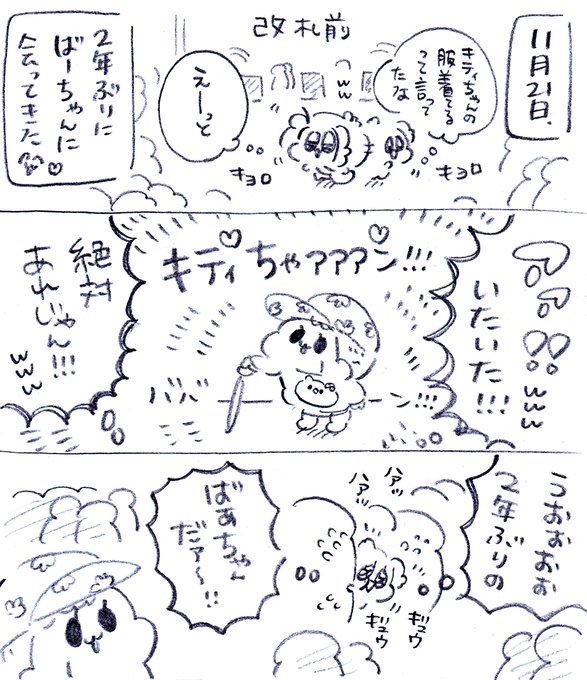 11月21日.
2年ぶりに
ばーちゃんに
会ってきた♡
改札前
キティちゃんの
服着てる
って言って
たな
ww
えーっと
キョロ
キョロ
アアア!!
いたいた!!!
www
キティちゃァァァン!!!
ババ
ーン!!!
絶対
あれじゃん!!!
www
うおおおお
2年ぶりの
ハアッ
ハアッ
ギュウ
ギュウ
ばあちゃん
だァ〜!!